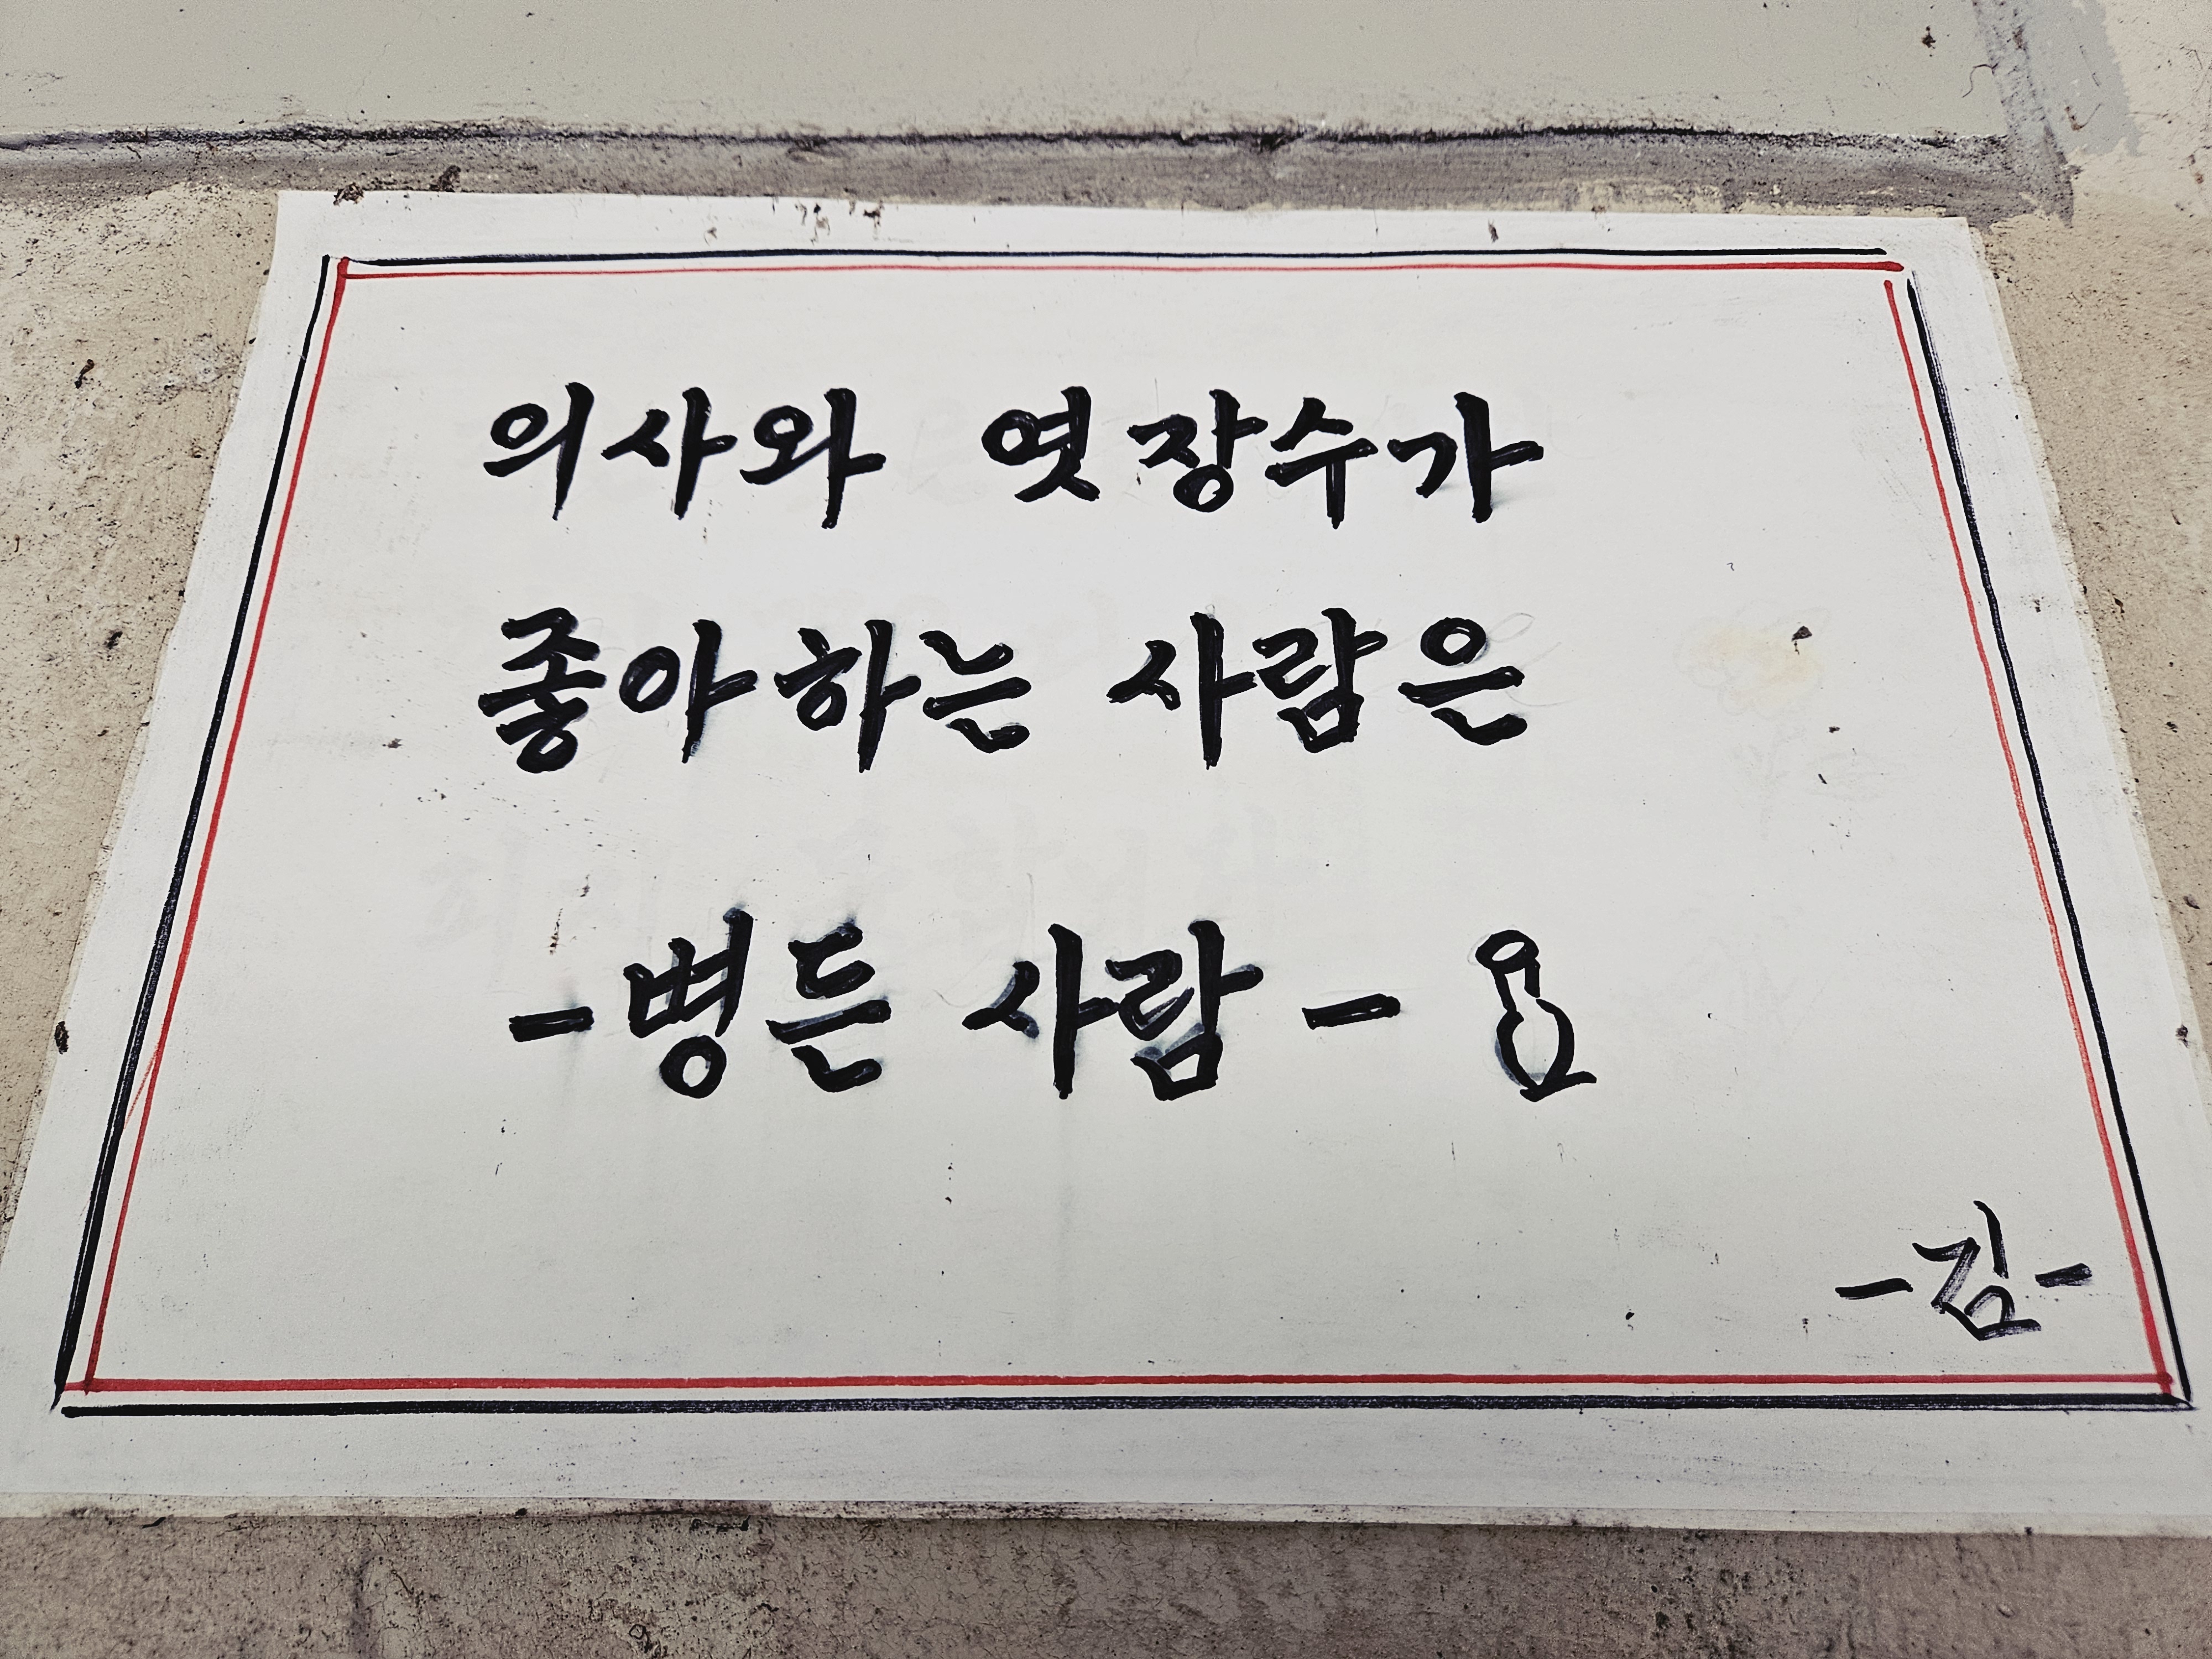 의사와 엿장수가
좋아하는 사람은
-병든 사람-
-김-